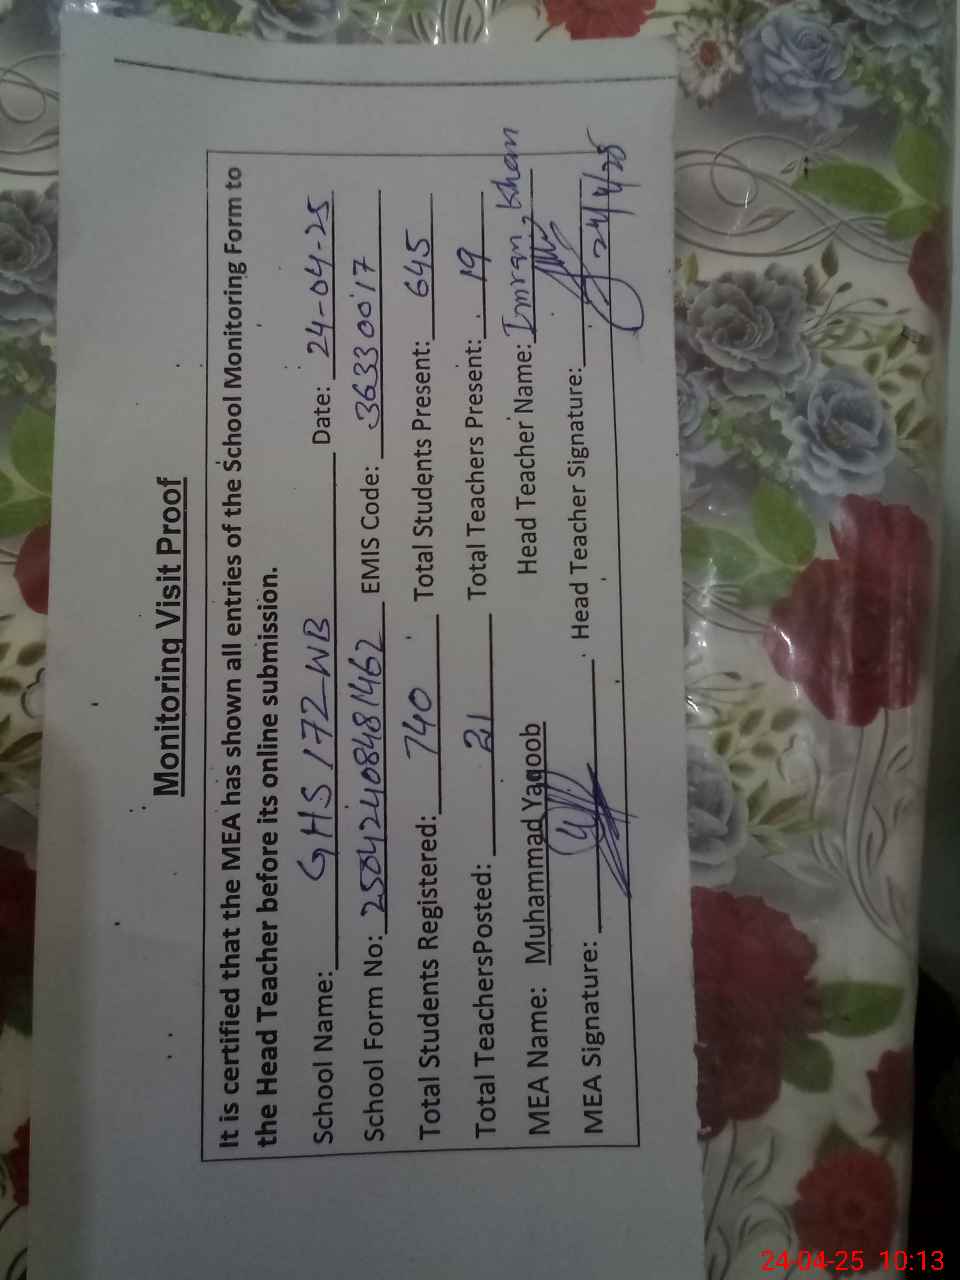 Monitoring Visit Proof
It is certified that the MEA has shown all entries of the School Monitoring Form to
the Head Teacher before its online submission.
School Name: GHS 172-WB Date: 24-04-25
School Form No: 25042408481462 EMIS Code: 36330017
Total Students Registered: 740 Total Students Present: 645
Total TeachersPosted: 21 Total Teachers Present: 19
MEA Name: Muhammad Yaqoob Head Teacher Name: Imran Khan
MEA Signature: Head Teacher Signature:
24/4/25
24-04-25 10:13